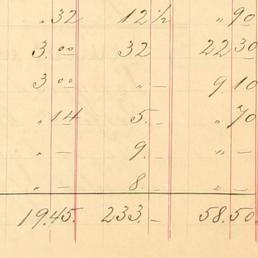 „ 32 12 ½ „ 90
3.00 32 22 30
3 00 „ – 9.10
„ 14 5. – „ 70
„ – 9. – „ –
„ – 8. – „ –
19.45. 233. – 58.50.